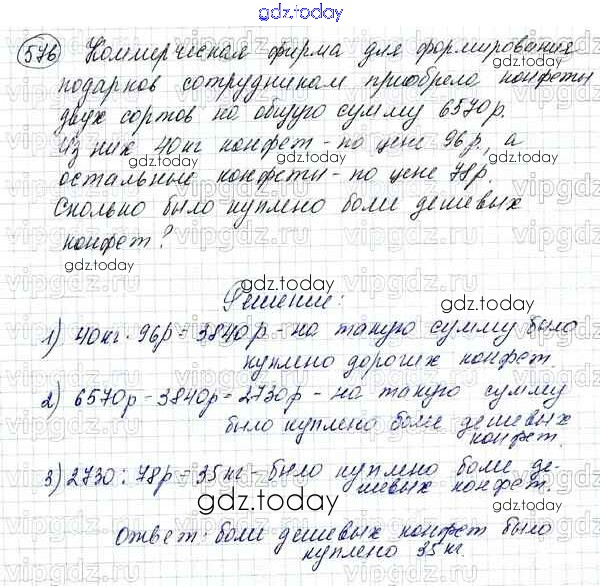 gdz.today
576 Коммерческая фирма для формирования
подарков сотрудникам приобрела конфеты
двух сортов на общую сумму 6570р.
Из них 40кг конфет - по цене 96р., а
остальные конфеты - по цене 78р.
Сколько было куплено боле дешевых
конфет?
Решение:
1) 40кг · 96р = 3840р - на такую сумму было
куплено дорогих конфет.
2) 6570р - 3840р = 2730р - на такую сумму
было куплено боле дешевых
конфет.
3) 2730 : 78р = 35кг - было куплено боле де-
шевых конфет.
Ответ: боле дешевых конфет было
куплено 35кг.